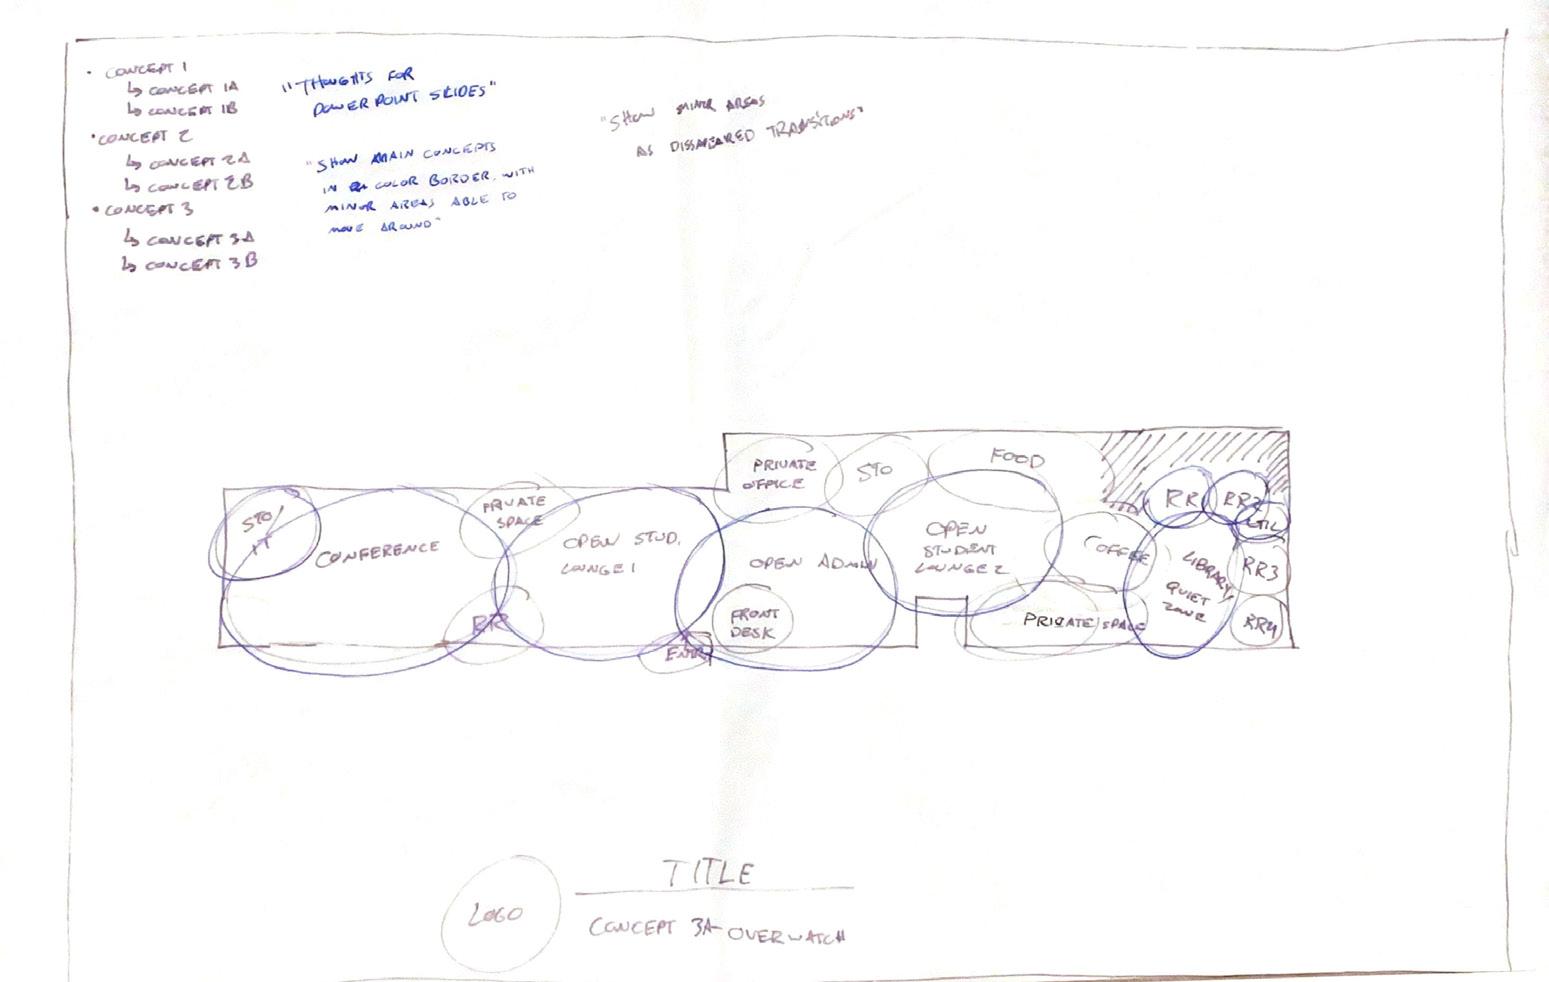 • CONCEPT 1
↳ CONCEPT 1A
↳ CONCEPT 1B
• CONCEPT 2
↳ CONCEPT 2A
↳ CONCEPT 2B
• CONCEPT 3
↳ CONCEPT 3A
↳ CONCEPT 3B
"THOUGHTS FOR
POWERPOINT SLIDES"
"SHOW MAIN CONCEPTS
IN COLOR BORDER, WITH
MINOR AREAS ABLE TO
MOVE AROUND"
"SHOW MINOR AREAS
AS DISSAPEARED TRANSITIONS"
STO/
IT
CONFERENCE
PRIVATE
SPACE
RR
OPEN STUD.
LOUNGE 1
ENTR
PRIVATE
OFFICE
STO
OPEN ADMIN
FRONT
DESK
FOOD
OPEN
STUDENT
LOUNGE 2
COFFEE
PRIVATE SPACE
LIBRARY/
QUIET
ZONE
RR
RR2
UTIL
RR3
RR4
LOGO
TITLE
CONCEPT 3A- OVERWATCH